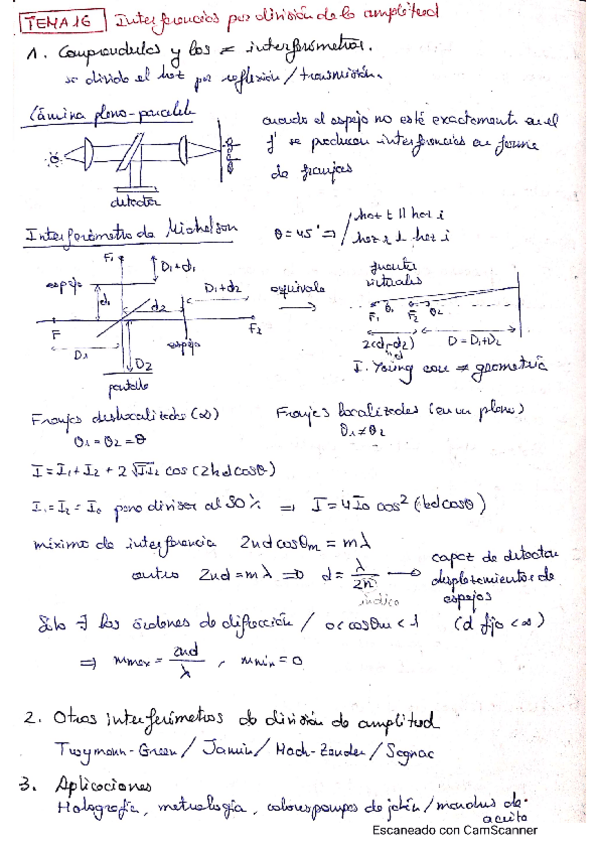 TEMA 16 Interferencias por división de la amplitud
1. Comprenderlas y los ≠ interferómetros.
se divide el haz por reflexión/transmisión.
Lámina plano-paralela
cuando el espejo no esté exactamente en el
f' se producen interferencias en forma
de franjas
detector
Interferómetro de Michelson
θ=45º ⇒ / haz t ∥ haz i
haz r ⊥ haz i
F₁
D₁+d₁
espejo
d₁
d₂
D₁+d₂
F
F₂
D₁
espejo
D₂
pantalla
equivale
fuentes
virtuales
F₁ θ₁ F₂ θ₂
2(d₁-d₂)
D = D₁+D₂
I. Young con ≠ geometría
Franjas deslocalizadas (∞)
θ₁ = θ₂ = θ
Franjas localizadas (en un plano)
θ₁ ≠ θ₂
I = I₁ + I₂ + 2√I₁I₂ cos(2kdcosθ)
I₁ = I₂ = I₀ para divisor al 50% ⇒ I = 4I₀ cos²(kdcosθ)
máximo de interferencia 2nd cosθm = mλ
centro 2nd = mλ ⇒ d = λ/2n
índice
capaz de detectar
desplazamientos de
espejos
Sólo ∃ los órdenes de difracción / 0<cosθm<1 (d fijo <∞)
⇒ mmax = 2nd/λ , mmin = 0
2. Otros interferímetros de división de amplitud
Twymann-Green / Jamin / Mach-Zender / Sagnac
3. Aplicaciones
Holografía, metrología, colores pompas de jabón / manchas de
aceite
Escaneado con CamScanner